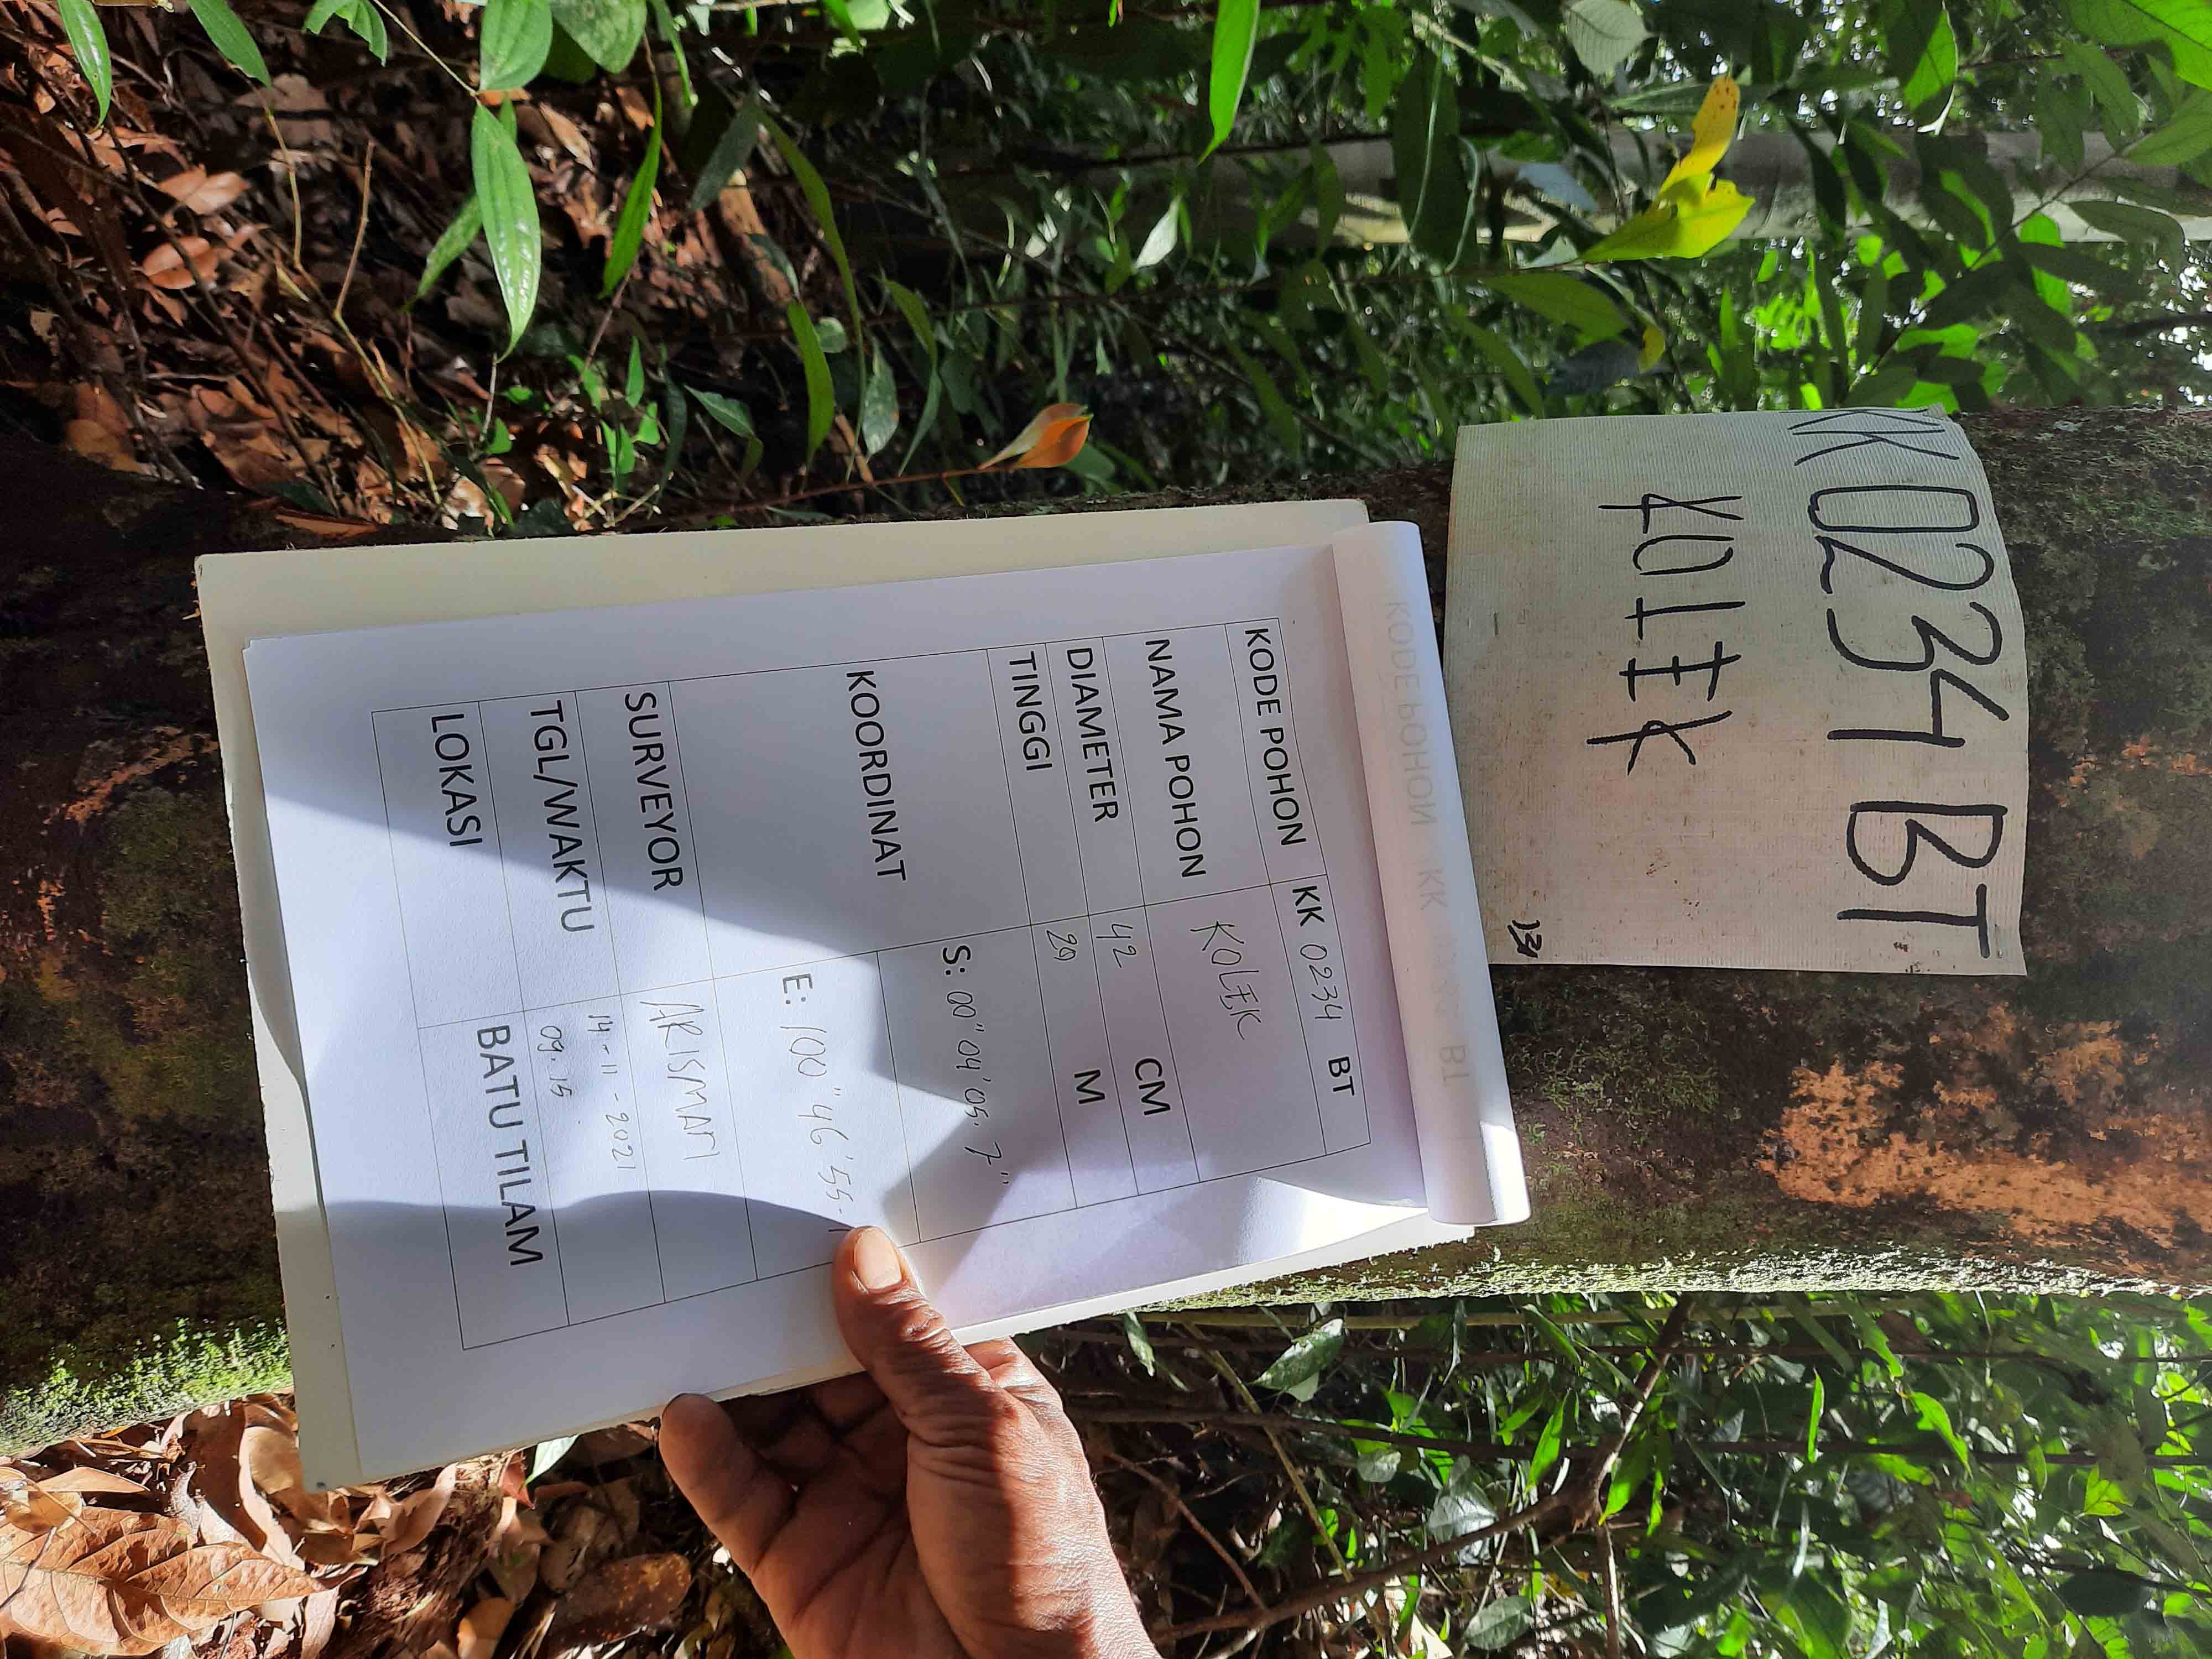 KK0234 BT
KOLEK
KODE POHON KK 0234 BT
NAMA POHON KOLEK
DIAMETER 42 CM
TINGGI 20 M
KOORDINAT S: 00" 04' 05. 7''
E: 100" 46' 55-
SURVEYOR ARISMAN
TGL/WAKTU 14 - 11 - 2021
09. 15
LOKASI BATU TILAM